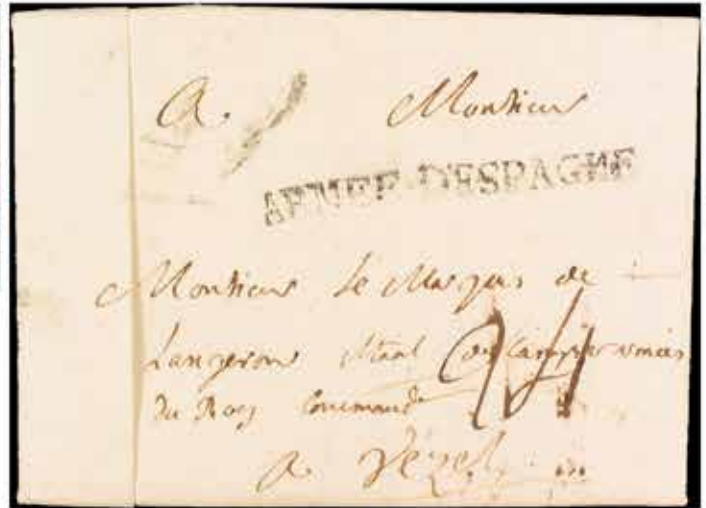 A. Monsieur
ARMEE D'ESPAGNE
Monsieur le Marquis de
Langeron Maal de Camp
du Roy Command
a Vezel
24